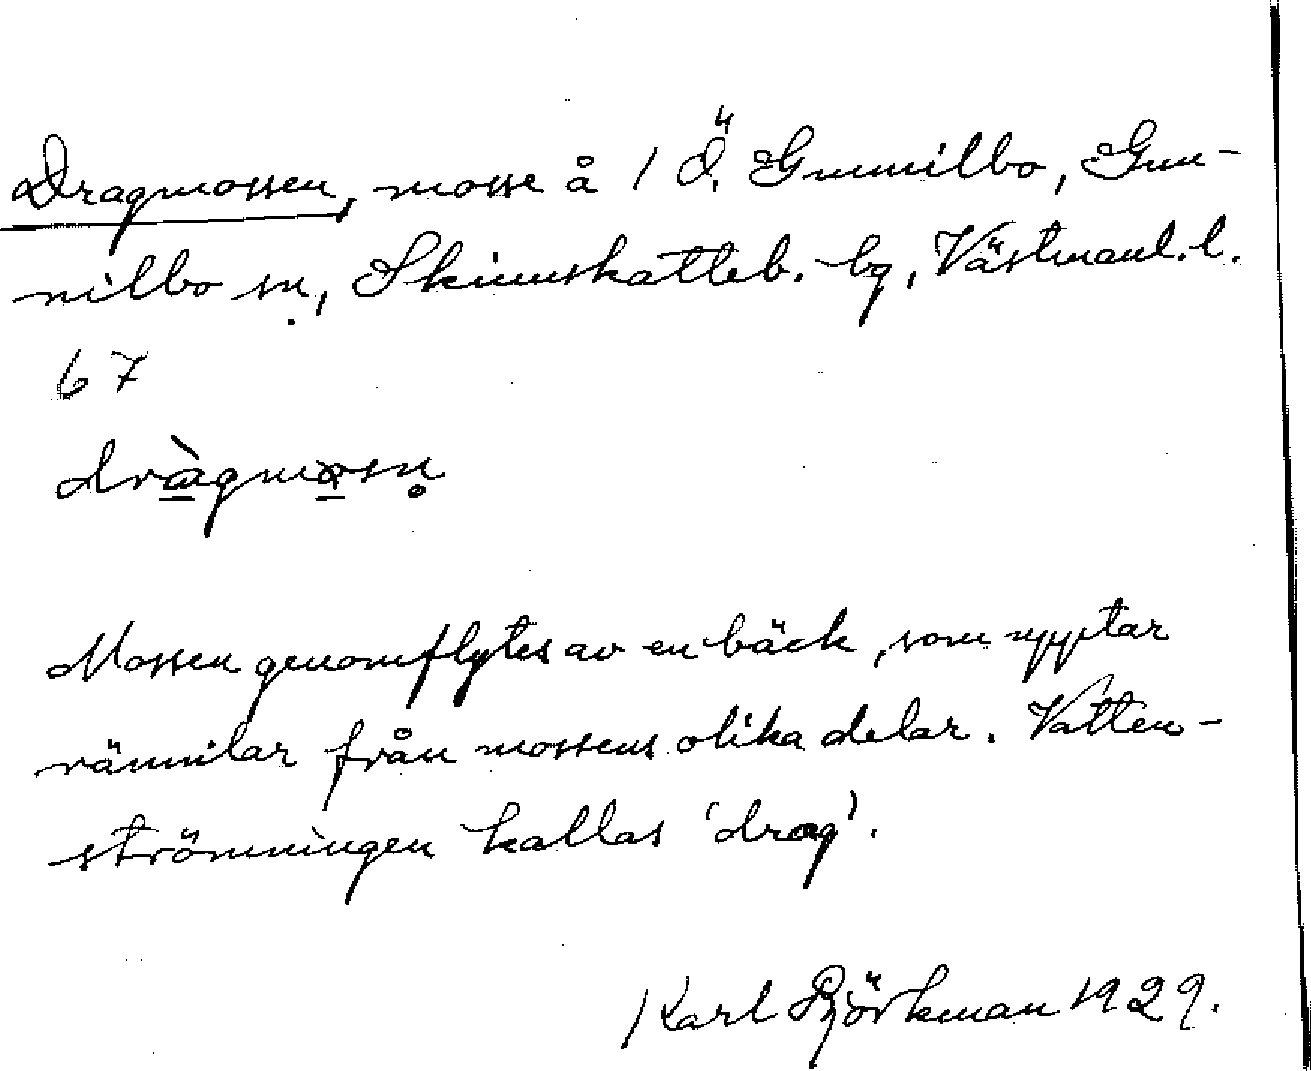 Dragmossen, mosse å 1 Ö. Gunnilbo, Gun-
nilbo sn, Skinnskatteb. bg, Västmanl. l.
67
dràgmosn̥
Mossen genomflytes av en bäck, som upptar
rännilar från mossens olika delar. Vatten-
strömningen kallas 'drag'.
Karl Björkman 1929.